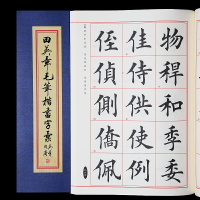 田英章毛筆楷書字彙
物稈和季委
佳侍供使例
侄偵側僑佩